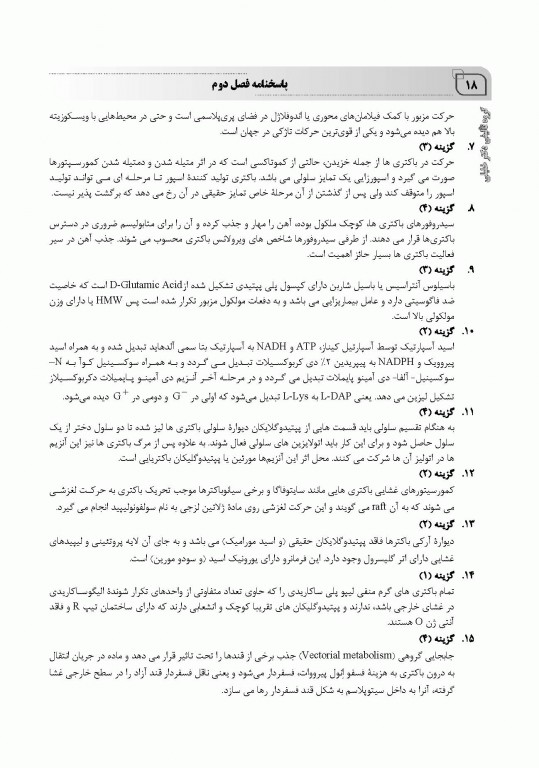 ۱۸
پاسخنامه فصل دوم
حرکت مزبور با کمک فیلامان‌های محوری یا اندوفلاژل در فضای پری‌پلاسمی است و حتی در محیط‌هایی با ویسکوزیته
بالا هم دیده می‌شود و یکی از قوی‌ترین حرکات تاژکی در جهان است.
۷. گزینه (۳)
حرکت در باکتری ها از جمله خزیدن، حالتی از کموتاکسی است که در اثر متیله شدن و دمتیله شدن کمورسپتورها
صورت می گیرد و اسپورزایی یک تمایز سلولی می باشد. باکتری تولید کنندۀ اسپور تا مرحله ای می تواند تولید
اسپور را متوقف کند ولی پس از گذشتن از آن مرحلۀ خاص تمایز حقیقی در آن رخ می دهد که برگشت پذیر نیست.
۸. گزینه (۴)
سیدروفورهای باکتری ها، کوچک ملکول بوده، آهن را مهار و جذب کرده و آن را برای متابولیسم ضروری در دسترس
باکتری‌ها قرار می دهند. از طرفی سیدروفورها شاخص های ویرولانس باکتری محسوب می شوند. جذب آهن در سیر
فعالیت باکتری ها بسیار حائز اهمیت است.
۹. گزینه (۳)
باسیلوس آنتراسیس یا باسیل شاربن دارای کپسول پلی پپتیدی تشکیل شده از D-Glutamic Acid است که خاصیت
ضد فاگوسیتی دارد و عامل بیماریزایی می باشد و به دفعات مولکول مزبور تکرار شده است پس HMW یا دارای وزن
مولکولی بالا است.
۱۰. گزینه (۲)
اسید آسپارتیک توسط آسپارتیل کیناز، ATP و NADH به آسپارتیک بتا سمی آلدهاید تبدیل شده و به همراه اسید
پیروویک و NADPH به پیپریدین ۲٪ دی کربوکسیلات تبدیل می گردد و به همراه سوکسینیل کوآ به N–
سوکسینیل- آلفا- دی آمینو پایملات تبدیل می گردد و در مرحله آخر آنزیم دی آمینو پایمیلات دکربوکسیلاز
تشکیل لیزین می دهد. یعنی L-DAP به L-Lys تبدیل می‌شود که اولی در G⁻ و دومی در G⁺ دیده می‌شود.
۱۱. گزینه (۴)
به هنگام تقسیم سلولی باید قسمت هایی از پپتیدوگلایکان دیوارۀ سلولی باکتری ها لیز شده تا دو سلول دختر از یک
سلول حاصل شود و برای این کار باید اتولایزین های سلولی فعال شوند. به علاوه پس از مرگ باکتری ها نیز این آنزیم
ها در اتولیز آن ها شرکت می کنند. محل اثر این آنزیم‌ها مورئین یا پپتیدوگلیکان باکتریایی است.
۱۲. گزینه (۲)
کمورسپتورهای غشایی باکتری هایی مانند سایتوفاگا و برخی سیانوباکترها موجب تحریک باکتری به حرکت لغزشی
می شوند که به آن raft می گویند و این حرکت لغزشی روی مادۀ ژلاتین لزجی به نام سولفونولیپید انجام می گیرد.
۱۳. گزینه (۲)
دیوارۀ آرکی باکترها فاقد پپتیدوگلایکان حقیقی (و اسید مورامیک) می باشد و به جای آن لایه پروتئینی و لیپیدهای
غشایی دارای اتر گلیسرول وجود دارد. این فرمانرو دارای یورونیک اسید (و سودو مورین) است.
۱۴. گزینه (۱)
تمام باکتری های گرم منفی لیپو پلی ساکاریدی را که حاوی تعداد متفاوتی از واحدهای تکرار شوندۀ الیگوساکاریدی
در غشای خارجی باشد، ندارند و پپتیدوگلیکان های تقریبا کوچک و انشعابی دارند که دارای ساختمان تیپ R و فاقد
آنتی ژن O هستند.
۱۵. گزینه (۴)
جابجایی گروهی (Vectorial metabolism) جذب برخی از قندها را تحت تاثیر قرار می دهد و ماده در جریان انتقال
به درون باکتری به هزینۀ فسفو اِنول پیرووات، فسفردار می‌شود و یعنی ناقل فسفردار قند آزاد را در سطح خارجی غشا
گرفته، آنرا به داخل سیتوپلاسم به شکل قند فسفردار رها می سازد.